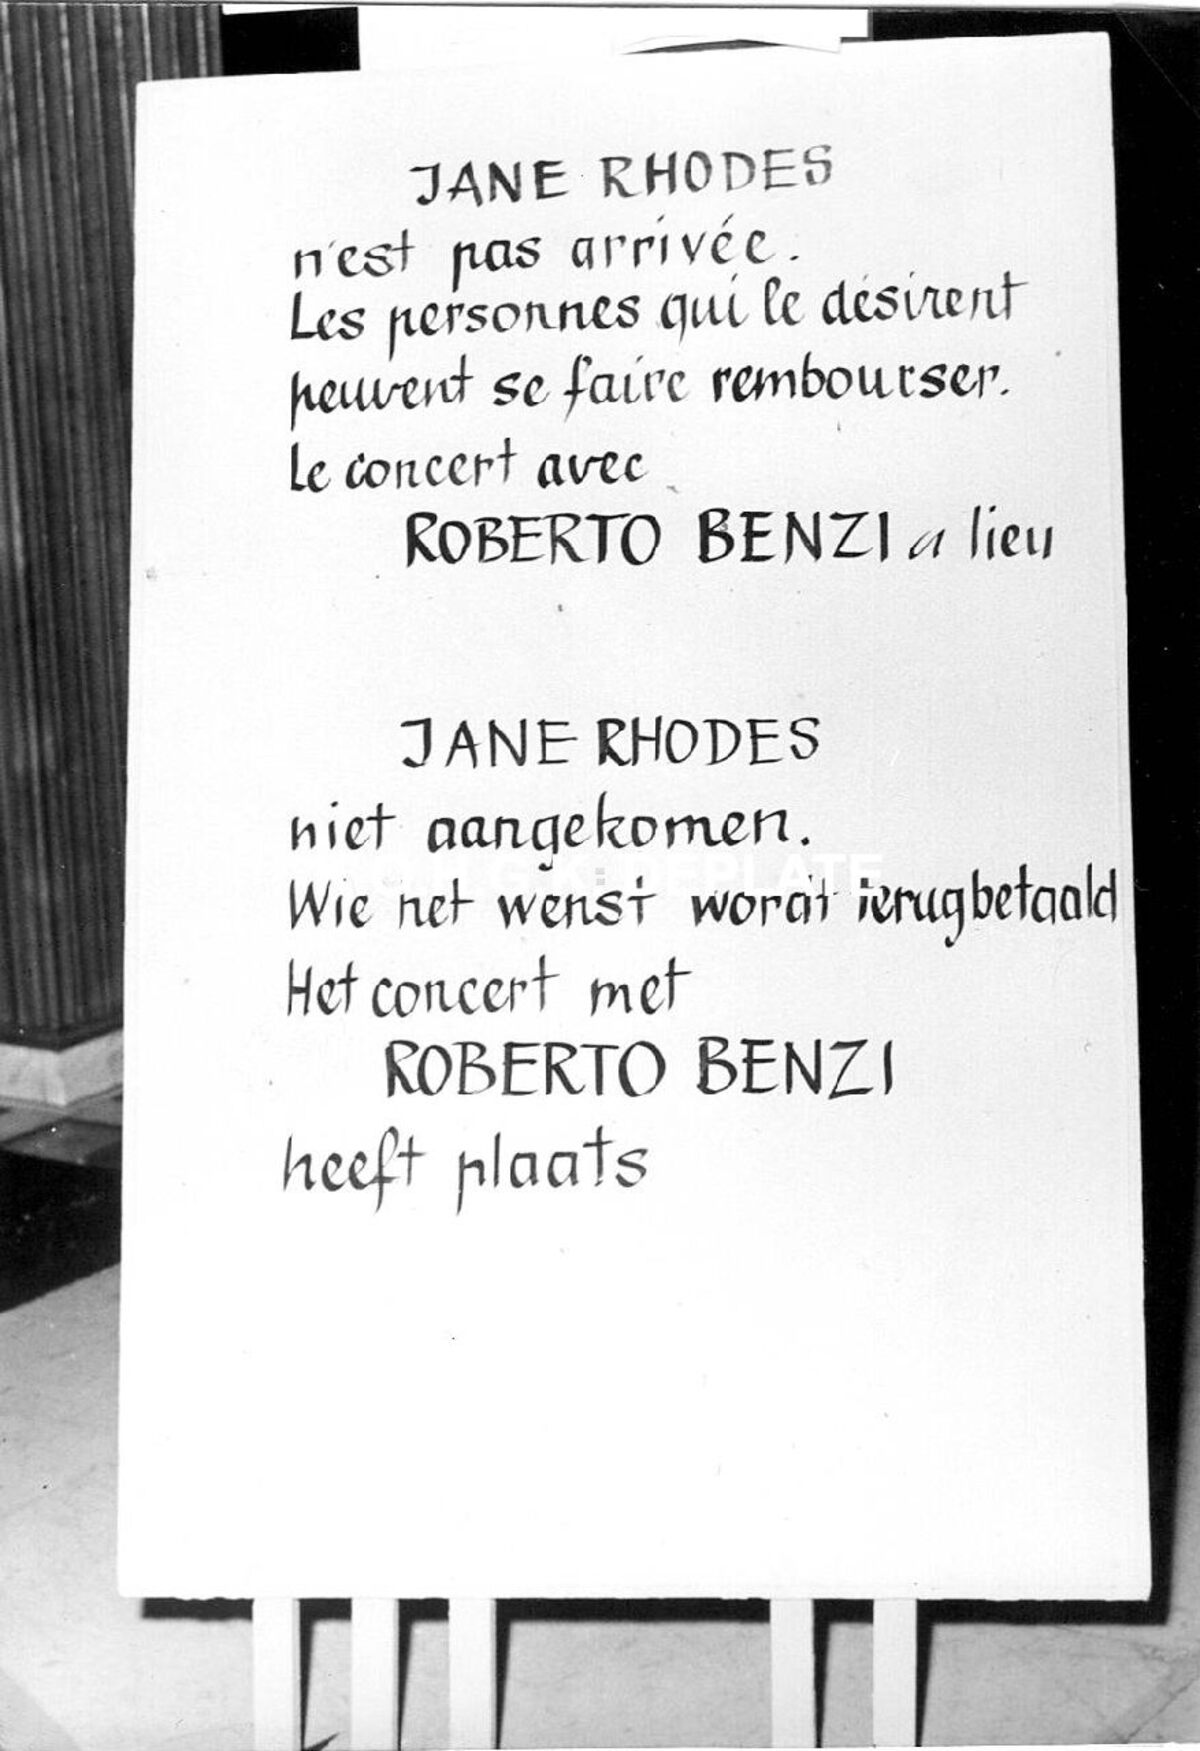 JANE RHODES
n'est pas arrivée.
Les personnes qui le désirent
peuvent se faire rembourser.
Le concert avec
ROBERTO BENZI a lieu
JANE RHODES
niet aangekomen.
Wie het wenst wordt terugbetaald
Het concert met
ROBERTO BENZI
heeft plaats